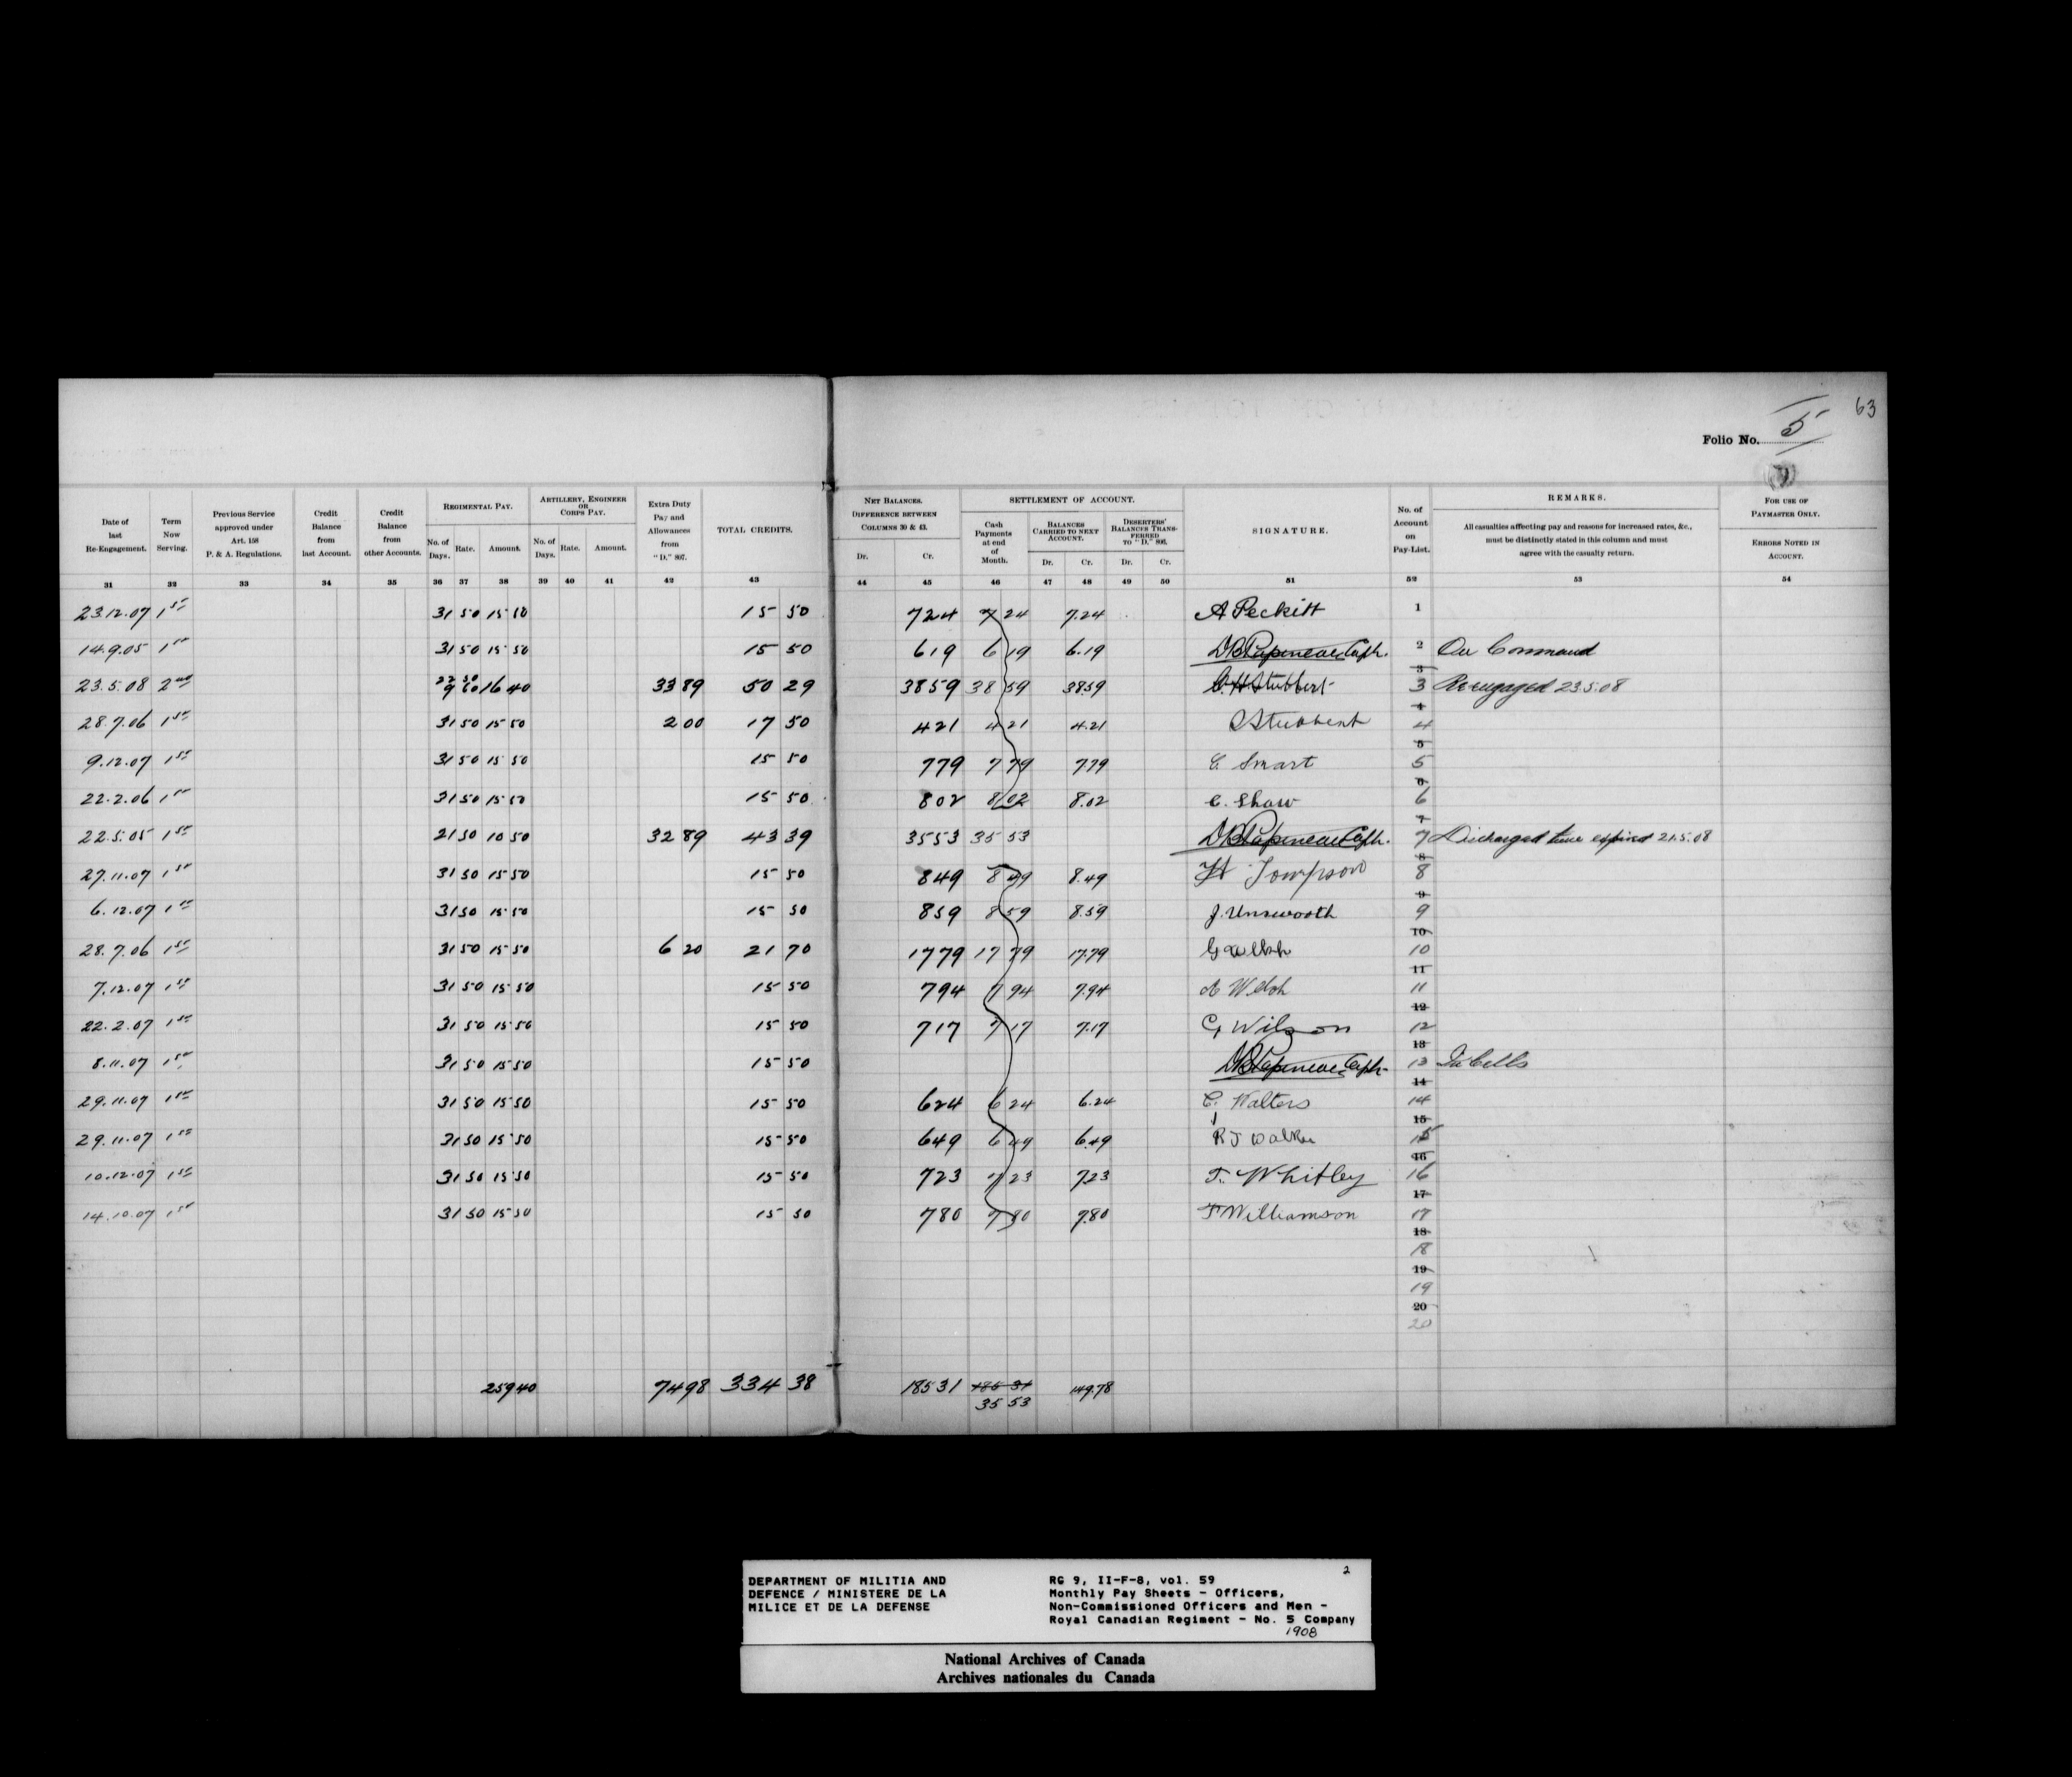 63
Folio No. 5
Date of last Re-Engagement.
Term Now Serving.
Previous Service approved under Art. 158 P. & A. Regulations.
Credit Balance from last Account.
Credit Balance from other Accounts.
REGIMENTAL PAY.
No. of Days. Rate. Amount.
ARTILLERY, ENGINEER OR CORPS PAY.
No. of Days. Rate. Amount.
Extra Duty Pay and Allowances from "D." 807.
TOTAL CREDITS.
NET BALANCES. DIFFERENCE BETWEEN COLUMNS 30 & 43.
Dr. Cr.
SETTLEMENT OF ACCOUNT.
Cash Payments at end of Month.
BALANCES CARRIED TO NEXT ACCOUNT.
Dr. Cr.
DESERTERS' BALANCES TRANSFERRED TO "D." 806.
Dr. Cr.
SIGNATURE.
No. of Account on Pay-List.
REMARKS.
All casualties affecting pay and reasons for increased rates, &c., must be distinctly stated in this column and must agree with the casualty return.
FOR USE OF PAYMASTER ONLY.
ERRORS NOTED IN ACCOUNT.
31 32 33 34 35 36 37 38 39 40 41 42 43 44 45 46 47 48 49 50 51 52 53 54
23.12.07 1st 31 50 15 50 15 50 7 24 7 24 7.24 A Peckitt 1
14.9.05 1st 31 50 15 50 15 50 6 19 6 19 6.19 Capt. 2 On Command
23.5.08 2nd 22 50 9 60 16 40 33 89 50 29 38 59 38 59 38.59 C.H. Stubbert 3 3 Re-engaged 23.5.08
28.7.06 1st 31 50 15 50 2 00 17 50 4 21 4 21 4.21 4 4
9.12.07 1st 31 50 15 50 15 50 7 79 7 79 7.79 E. Smart 5 5
22.2.06 1st 31 50 15 50 15 50 8 02 8 02 8.02 C. Shaw 6 6
22.5.05 1st 21 50 10 50 32 89 43 39 35 53 35 53 DB Papineau Capt. 7 7 Discharged time expired 21.5.08
27.11.07 1st 31 50 15 50 15 50 8 49 8 49 8.49 8 8
6.12.07 1st 31 50 15 50 15 50 8 59 8 59 8.59 J. Unsworth 9 9
28.7.06 1st 31 50 15 50 6 20 21 70 17 79 17 79 17.79 G Welsh 10 10
7.12.07 1st 31 50 15 50 15 50 7 94 7 94 7.94 Welsh 11 11
22.2.07 1st 31 50 15 50 15 50 7 17 7 17 7.17 G Wilson 12 12
8.11.07 1st 31 50 15 50 15 50 DB Papineau Capt 13 13 In Cells
29.11.07 1st 31 50 15 50 15 50 6 24 6 24 6.24 C. Walters 14 14
29.11.07 1st 31 50 15 50 15 50 6 49 6 49 6.49 R J Walker 15 15
10.12.07 1st 31 50 15 50 15 50 7 23 7 23 7.23 T. Whitley 16 16
14.10.07 1st 31 50 15 50 15 50 7 80 7 80 7.80 F Williamson 17 17
18 18
19 19
20 20
259 40 74 98 334 38 185 31 185 31 149.78
35 53
2
DEPARTMENT OF MILITIA AND
DEFENCE / MINISTERE DE LA
MILICE ET DE LA DEFENSE
RG 9, II-F-8, vol. 59
Monthly Pay Sheets - Officers,
Non-Commissioned Officers and Men -
Royal Canadian Regiment - No. 5 Company
1908
National Archives of Canada
Archives nationales du Canada